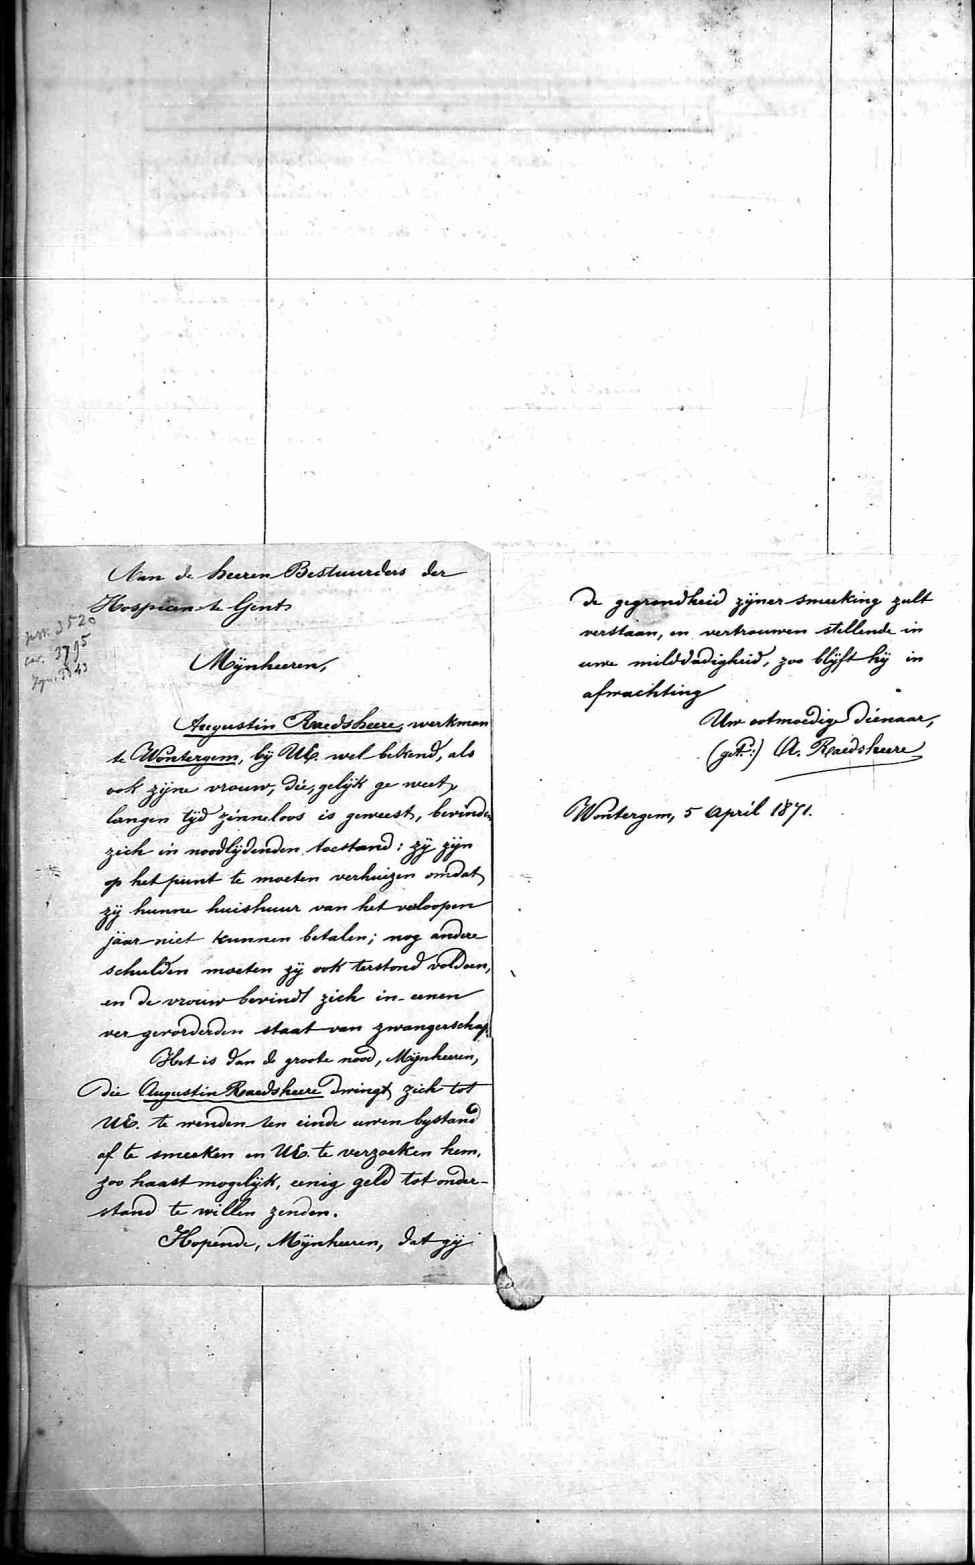 Aan de heeren Bestuurders der
Hospicen te Gent
3520
3795
Mynheeren,
Augustin Raedsheere, werkman
te Wontergem, by UE. wel bekend, als
ook zyne vrouw, die, gelyk ge weet,
langen tyd zinneloos is geweest, bevinden
zich in noodlydenden toestand: zy zyn
op het punt te moeten verhuizen omdat
zy hunne huishuur van het verloopen
jaar niet kunnen betalen; nog andere
schulden moeten zy ook terstond voldoen,
en de vrouw bevindt zich in eenen
ver gevorderden staat van zwangerschap.
Het is dan de groote nood, Mynheeren,
die Augustin Raedsheere dwingt zich tot
UE. te wenden ten einde uwen bystand
af te smeeken en UE. te verzoeken hem,
zoo haast mogelyk, eenig geld tot onder-
stand te willen zenden.
Hopende, Mynheeren, dat gy
de gegrondheid zyner smeeking zult
verstaan, en vertrouwen stellende in
uwe milddadigheid, zoo blyft hy in
afwachting
Uw ootmoedige dienaar,
(get.:) A. Raedsheere
Wontergem, 5 April 1871.